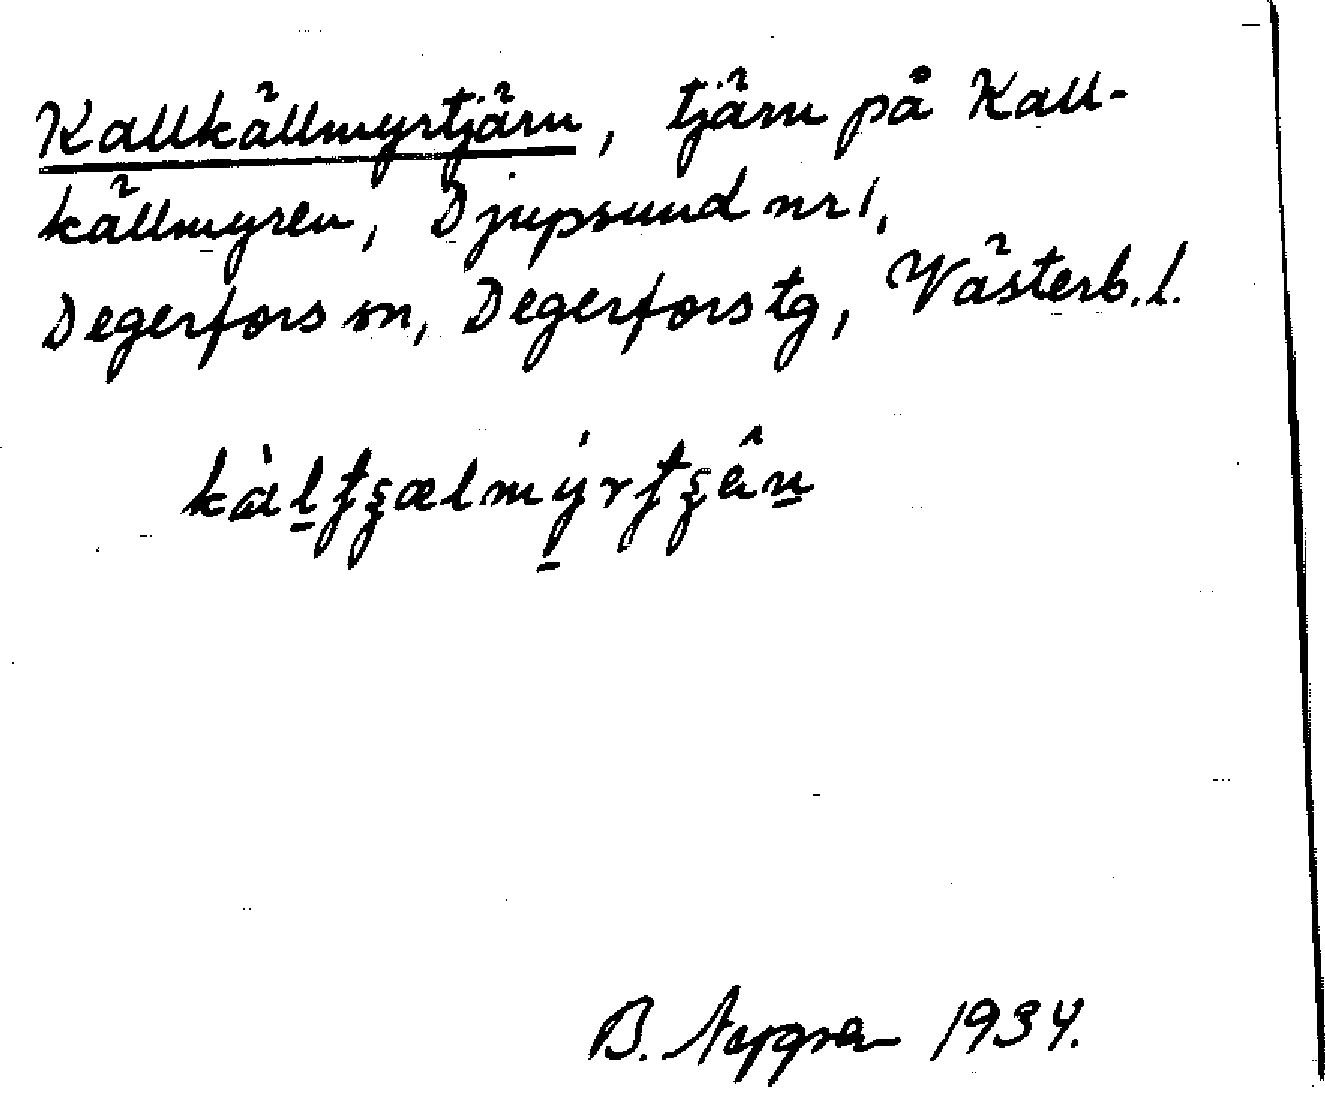 Kallkällmyrtjärn, tjärn på Kall-
källmyren, Djupsund nr 1,
Degerfors sn, Degerfors tg, Västerb. l.
B. 1934.